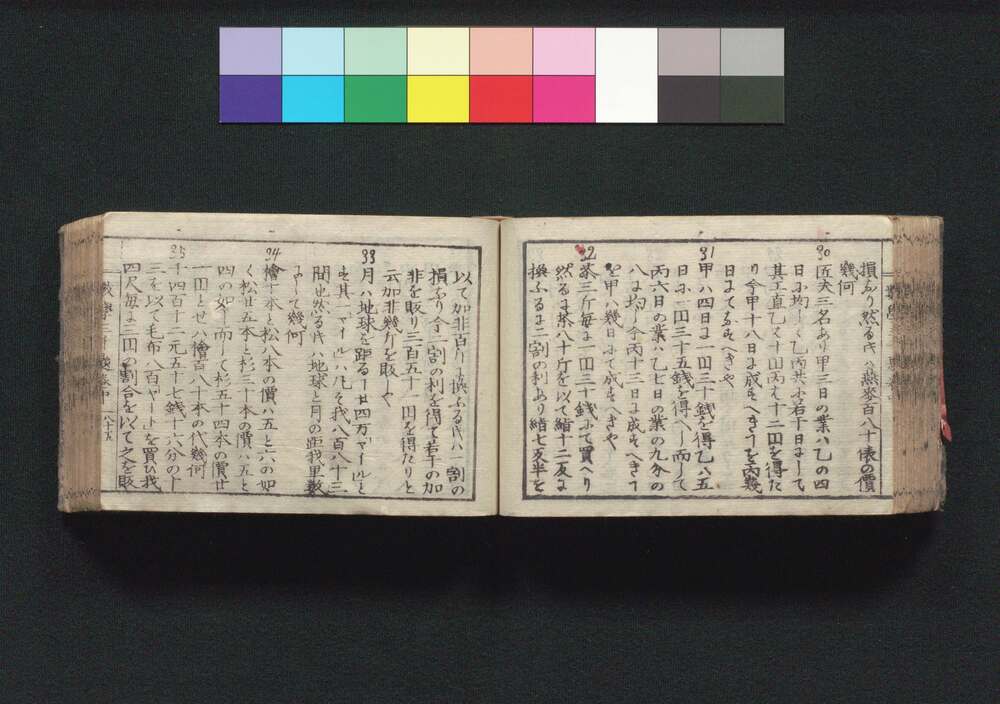 損あり然る時ハ燕麥百八十俵の價
幾何
30
匠夫三名あり甲三日の業ハ乙の四
日に均しく乙丙共に若干日にして
其工直乙ハ十円丙ハ十二円を得た
り今甲十八日に成すへき工を丙幾
日にてなすへきや
31
甲ハ四日に一円三十銭を得乙ハ五
日に一円三十五銭を得へし而して
丙六日の業ハ乙七日の業の九分の
八に均し今丙十三日に成すへき工
を甲ハ幾日にて成すへきや
32
茶三斤毎に一円三十銭にて買へり
然るに茶八十斤を以て絹十二反に
換ふるに二割の利あり絹七反半を
以て加非百斤に換ふる時ハ一割の
損あり今二割の利を得て若干の加
非を販り三百五十一円を得たりと
云加非幾斤を販しや
33
月ハ地球を距る丁廿四万マイルと
す其一マイルハ凡そ我八百八十三
間也然る時ハ地球と月の距我里数
にして幾何
34
檜十本と松八本の價ハ五と六の如
く松廿五本と杉三十本の價ハ五と
四の如し而して杉五十四本の價廿
一円とせハ檜百八十本の代幾何
35
十四百十二元五十七銭十六分の十
三を以て毛布八百ヤードを買ひ我
四尺毎に三円の割合を以て之を販